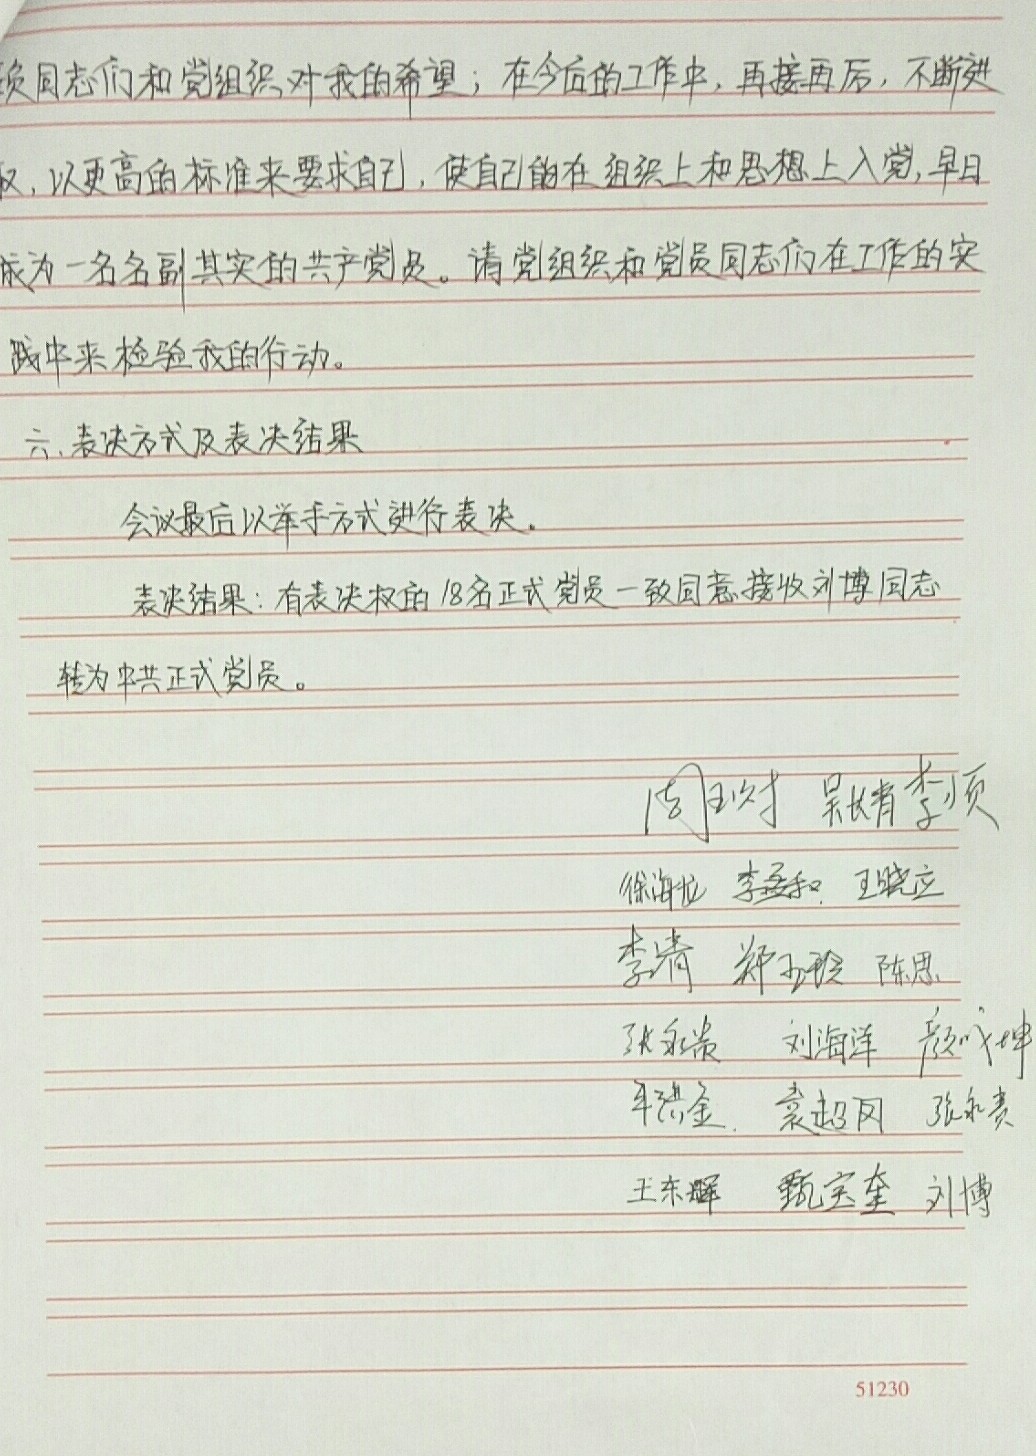 员同志们和党组织对我的希望；在今后的工作中，再接再厉，不断进
取，以更高的标准来要求自己，使自己能在组织上和思想上入党，早日
成为一名名副其实的共产党员。请党组织和党员同志们在工作的实
践中来检验我的行动。
六、表决方式及表决结果
会议最后以举手方式进行表决。
表决结果：有表决权的18名正式党员一致同意接收刘博同志
转为中共正式党员。
李顺
王晓立
李清 陈思
张永贵 刘海洋 颜成坤
袁超网 张永贵
王东辉 甄宝奎 刘博
51230